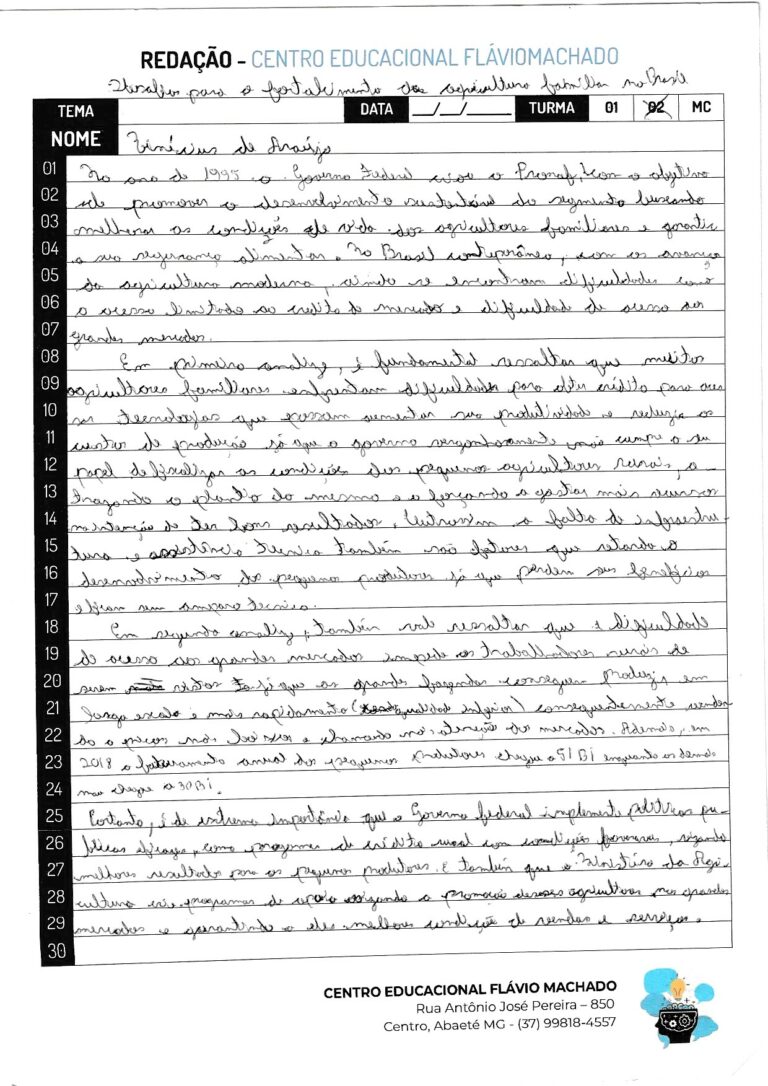 REDAÇÃO - CENTRO EDUCACIONAL FLÁVIOMACHADO
para o fortalcimento das agricultura familiar no Brasil
TEMA DATA _/_/_ TURMA 01 02 MC
NOME Vinícius de Araújo
01 No ano de 1995 o Governo Federal criou o Pronaf, com o objetivo
02 de promover o desenvolvimento sustentável do segmento buscando
03 melhorar as condições de vida dos agricultores familiares e garantir
04 a sua segurança alimentar. No Brasil contemporâneo, com os avanços
05 da agricultura moderna, ainda se encontram dificuldades como
06 o acesso limitado ao credito de mercado e dificuldade de acesso aos
07 grandes mercados.
08 Em primeira analize, é fundamental ressaltar que muitos
09 agricultores familiares enfrentam dificuldades para obter crédito para aces
10 sar tecnologias que possam aumentar sua produtividade e reduzir os
11 custos de produção já que o governo vergonhosamente não cumpre o seu
12 papel de fiscalizar as condições dos pequenos agricultores rurais, a-
13 trazando o plantio do mesmo e o forçando a gastar mais recursos
14 na intenção de ter bons resultados. Outrossim a falta de infraestru-
15 tura e assistência tecnica também são fatores que retarda o
16 desenvolvimento dos pequenos produtores já que perdem seus beneficios
17 e ficam sem amparo tecnico.
18 Em segunda analize, também vale ressaltar que a dificuldade
19 de acesso aos grandes mercados impede os trabalhadores rurais de
20 serem vistos já que as grandes fazendas conseguem produzir em
21 larga escala e mais rapidamente (qualidade inferior) consequentemente venden
22 do a preços mais baixos e chamando mais atenção dos mercados. Ademais, em
23 2018 o faturamento anual dos pequenos produtores chegou a 51Bi enquanto os demais
24 não chega a 30Bi.
25 Portanto, é de extrema importância que o Governo federal implemente políticas pu-
26 blicas eficazes, como programas de crédito rural com condições favoraveis, vizando
27 melhores resultados para os pequenos produtores. E também que o Ministério da Agri-
28 cultura crie programas de apoio vizando a promoção desses agricultores nos grandes
29 mercados e garantindo a eles melhores condição de vendas e serviços.
30
CENTRO EDUCACIONAL FLÁVIO MACHADO
Rua Antônio José Pereira – 850
Centro, Abaeté MG - (37) 99818-4557